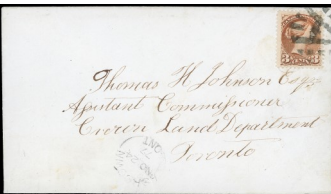 Thomas H Johnson Esqr
Assistant Commissioner
Crown Land Department
Toronto